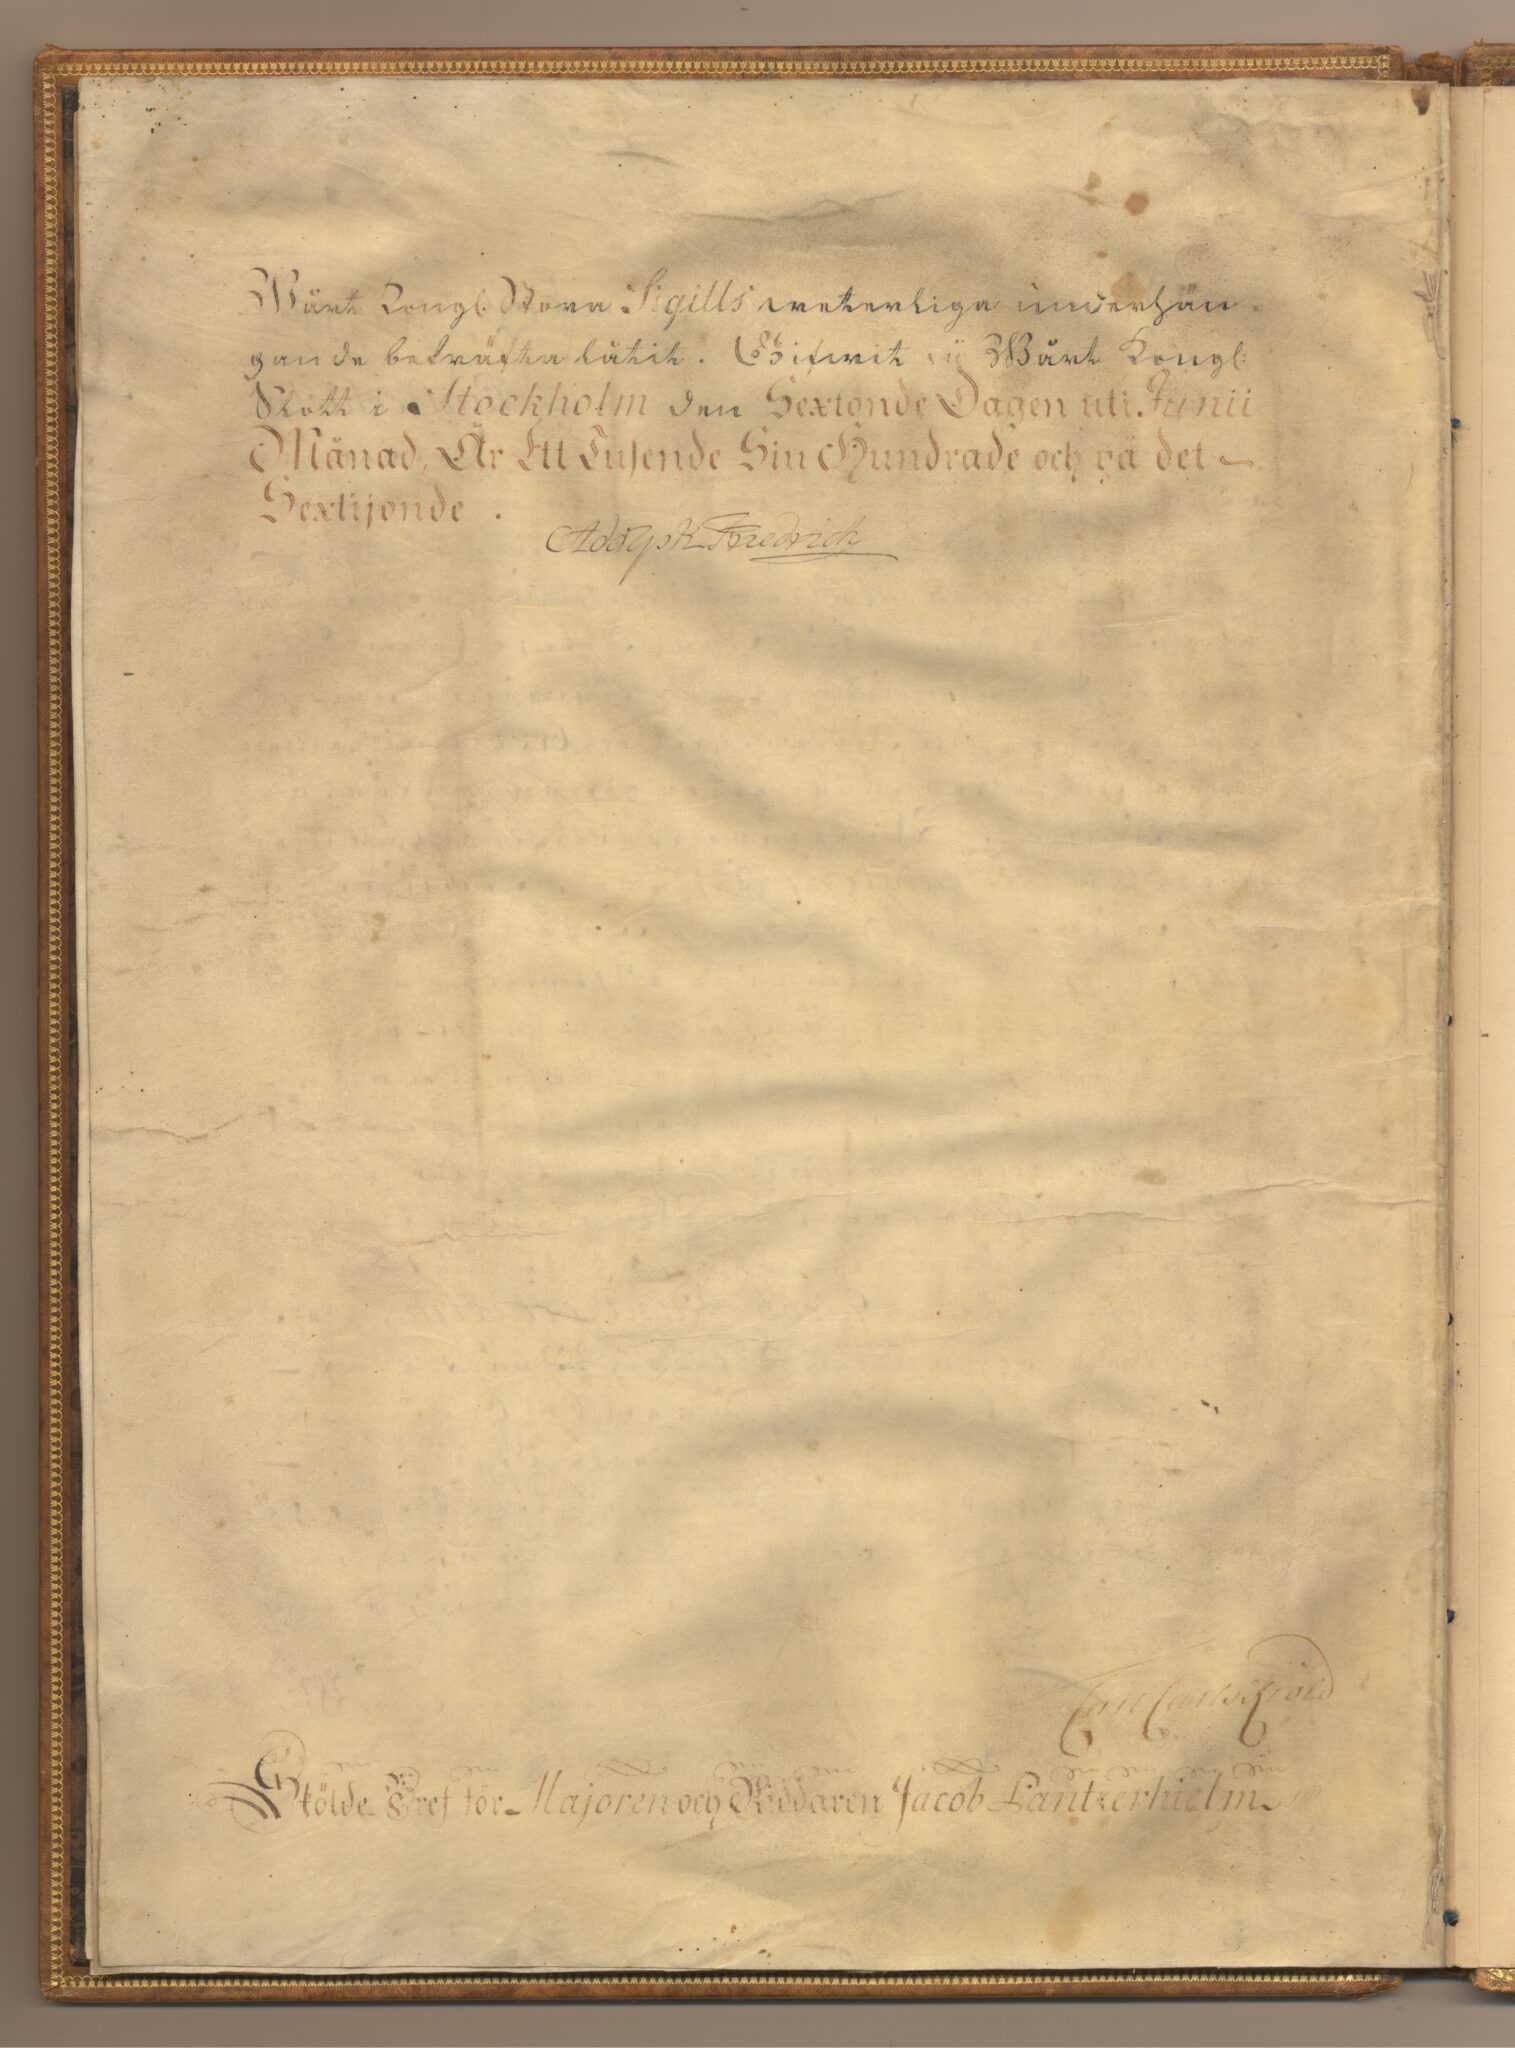 Wårt Kongl: Stora Sigills weterliga underhän
gande bekräfta låtit. Gifwit på Wårt Kongl:
Slott i Stockholm den Sextonde Dagen uti Junii
Månad, År Ett Tusende Siu Hundrade och på det
Sextijonde.
Adolph Friedrich
Carl Carlskiöld
Skölde Bref för Majoren och Riddaren Jacob Pantzerhielm